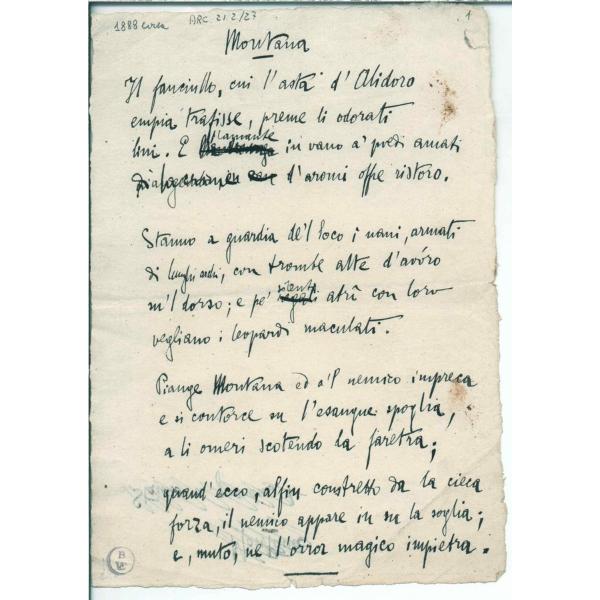 1888 circa
ARC 21.2/27
1
Montana
Il fanciullo, cui l'asta d'Alidoro
empia trafisse, preme li odorati
lini. E l'amante in vano a' piedi amati
d'aromi offre ristoro.
Stanno a guardia de'l loco i nani, armati
di lunghi archi, con trombe alte d'avòro
su'l dorso; e pe' silenti atrî con loro
vegliano i leopardi maculati.
Piange Montana ed a'l nemico impreca
e si contorce su l'esangue spoglia,
a li omeri scotendo la faretra;
quand'ecco, alfin constretto da la cieca
forza, il nemico appare in su la soglia;
e, muto, ne l'orror magico impietra.